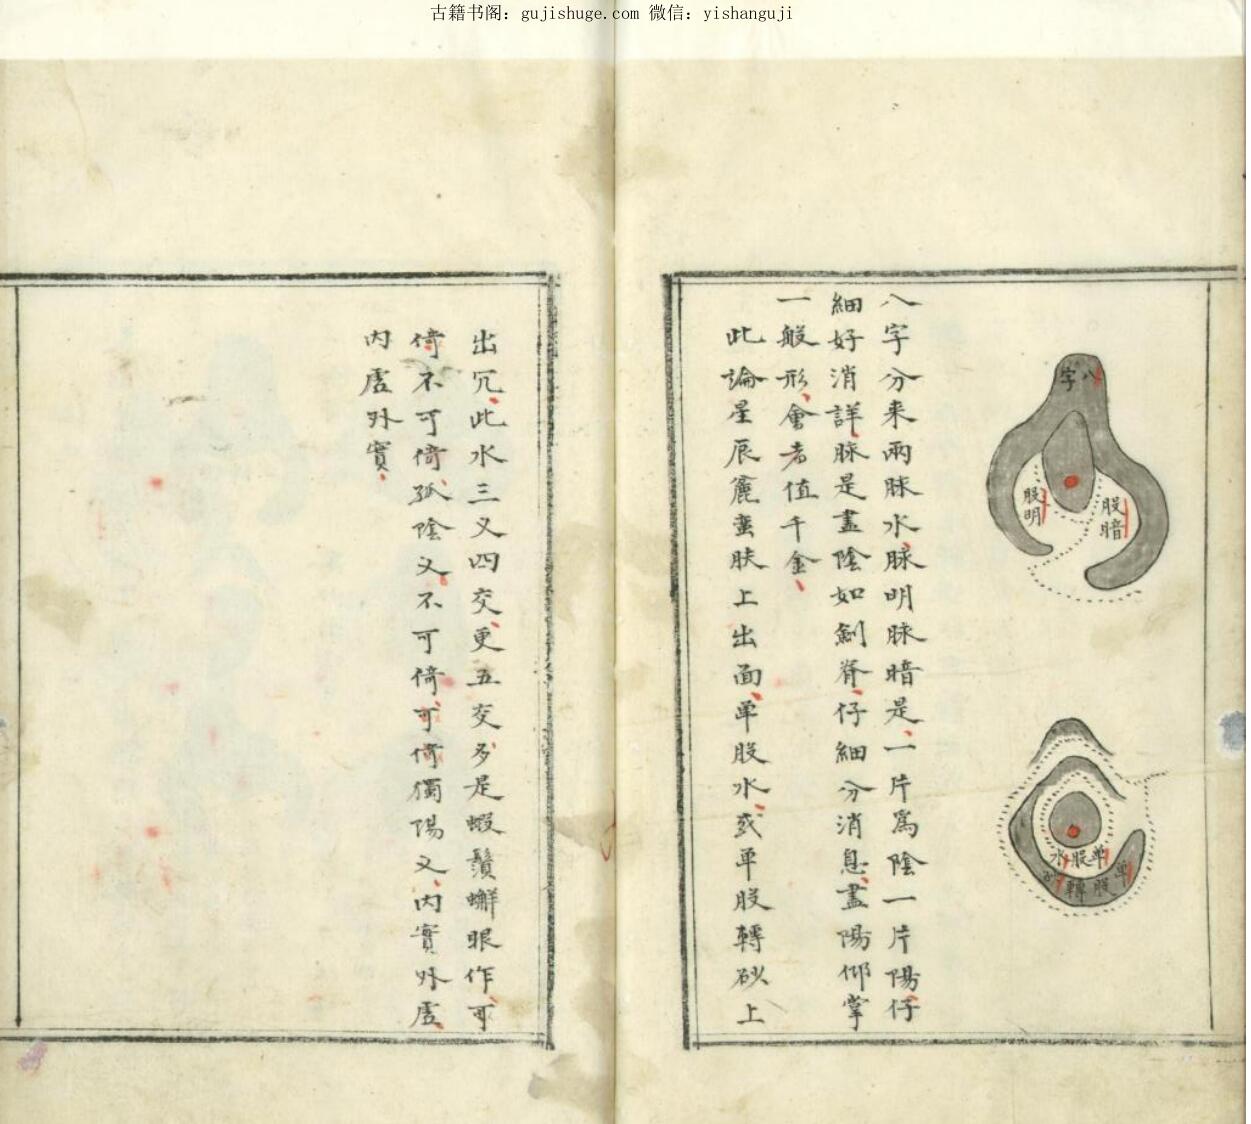 古籍书阁：gujishuge.com 微信：yishanguji
八字
股明
股暗
单股水
单股轉砂
八字分来兩脉水脉明脉暗是一片爲陰一片陽仔
細好消詳脉是盡陰如劍脊仔細分消息盡陽仰掌
一般形會者值千金
此論星辰麄蛮肤上出面单股水或单股轉砂上
出冗此水三义四交更五交多是蝦鬚蠏眼作可
倚不可倚孤陰又不可倚可倚獨陽又内實外虛
内虛外實